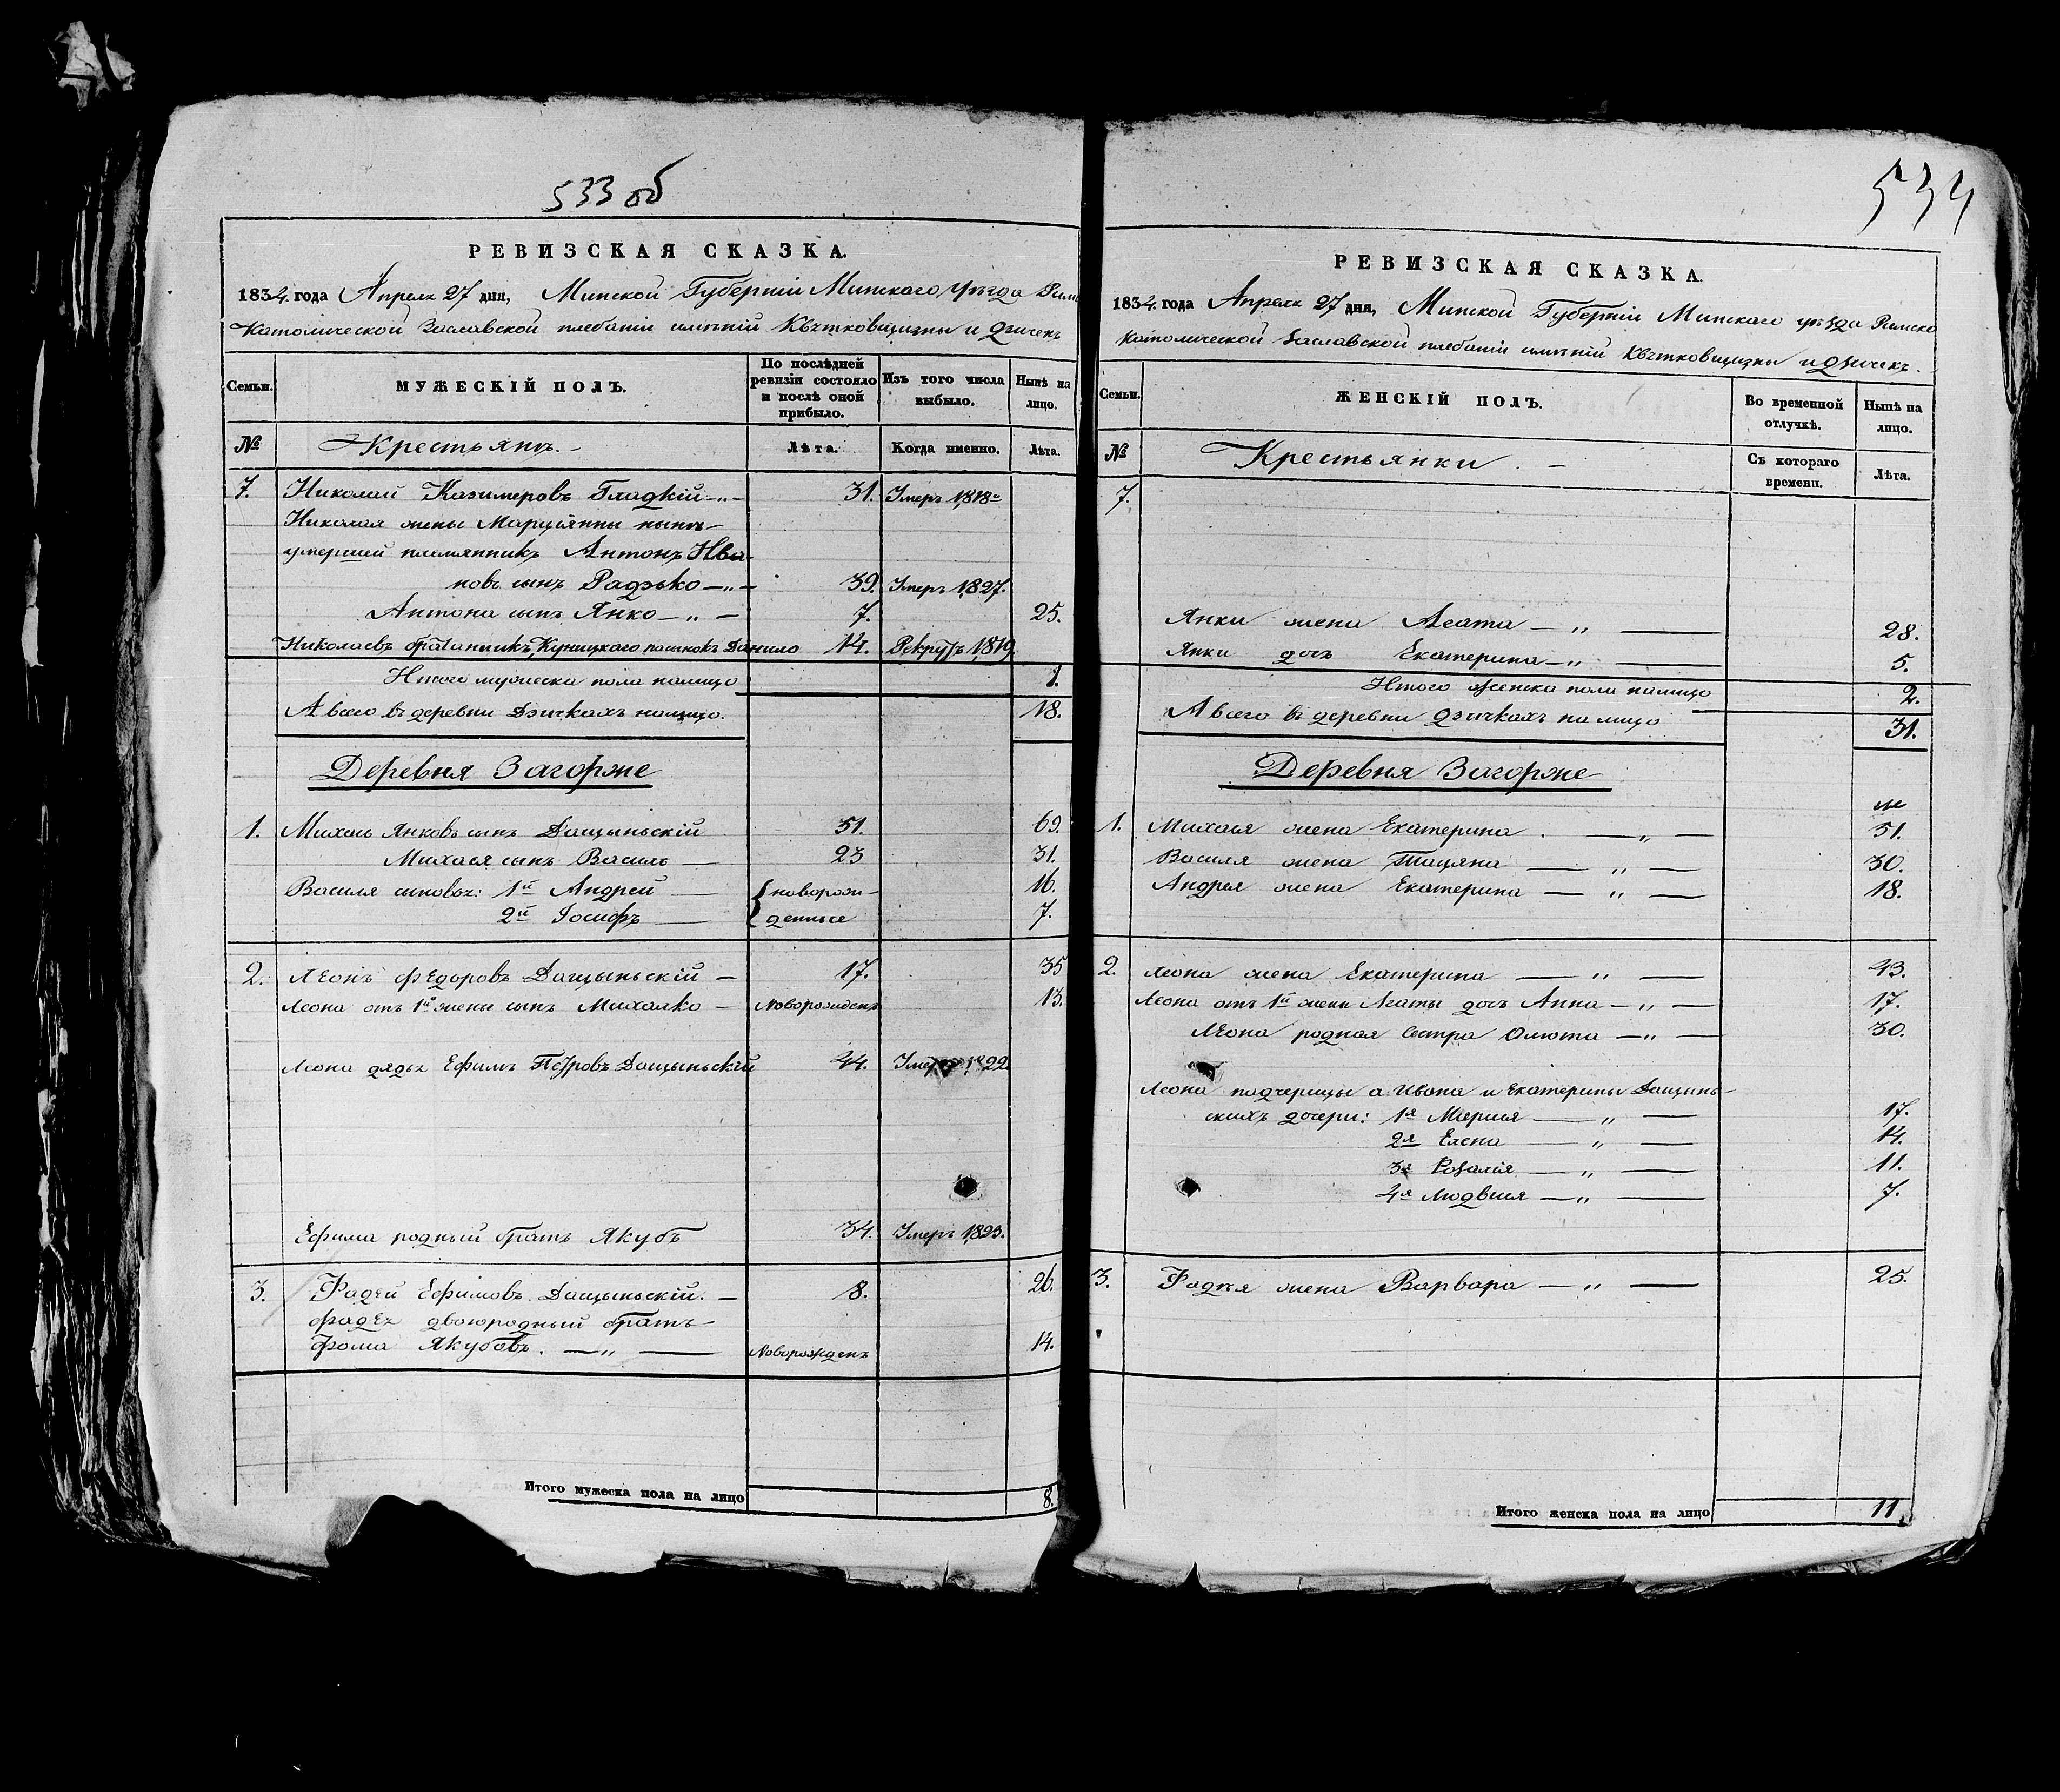 533 об
РЕВИЗСКАЯ СКАЗКА.
1834. года Апреля 27 дня, Минской Губерніи Минскаго уѣзда Римс
Католической Заславской плебаніи имѣній Квѣтковщизны и Дзичекъ
Семьи.
МУЖЕСКІЙ ПОЛЪ.
По послѣдней ревизіи состояло и послѣ оной прибыло.
Изъ того числа выбыло.
Нынѣ на лицо.
№ Крестьянъ. Лѣта. Когда именно. Лѣта.
7. Николай Казимеровъ Гладкій 31. Умеръ 1818
Николая жены Марціянны нынѣ
умершей племянникъ Антонъ Ива-
новъ сынъ Радзько 39. Умеръ 1827.
Антона сынъ Янко 7. 25.
Николаевъ братанникъ, Куницкаго пасынокъ Данило 14. Рекрутъ 1819
Итого мужеска пола налицо 1.
А всего въ деревни Дзичкахъ налицо. 18.
Деревня Загорже
1. Михась Янковъ сынъ Дащыньскій 51. 69.
Михася сынъ Василь 23 31.
Василя сыновья: 1й Андрей новорож- 16.
2й Іосифъ денные 7.
2. Леонъ Федоровъ Дащыньскій 17. 35
Леона отъ 1й жены сынъ Михалко Новорожденъ 13.
Леона дядя Ефимъ Петровъ Дащыньскій 44. Умеръ 1822
Ефима родный братъ Якубъ 34. Умеръ 1823.
3. Фадей Ефимовъ Дащыньскій. 8. 26.
Фадея двоюродный братъ
Фома Якубовъ. Новорожденъ 14.
Итого мужеска пола на лицо 8.
534
РЕВИЗСКАЯ СКАЗКА.
1834. года Апреля 27 дня, Минской Губерніи Минскаго уѣзда Римско
Католической Заславской плебаніи имѣній Квѣтковщизны и Дзичекъ.
Семьи.
ЖЕНСКІЙ ПОЛЪ.
Во временной отлучкѣ.
Нынѣ на лицо.
№ Крестьянки. Съ котораго времени. Лѣта.
7.
Янки жена Агата 28.
Янки дочь Екатерина 5.
Итого женска пола налицо 2.
А всего въ деревни Дзичкахъ на лицо 31.
Деревня Загорже
1. Михася жена Екатерина. 51.
Василя жена Тацяна 30.
Андрея жена Екатерина 18.
2. Леона жена Екатерина 43.
Леона отъ 1й жены Агаты дочь Анна 17.
Леона родная сестра Олюта 30.
Леона подчерицы а Ивана и Екатерины Дащынь-
скихъ дочери: 1я Марыя 17.
2я Елена 14.
3я Розалія 11.
4я Людвися 7.
3. Фадея жена Варвара 25.
Итого женска пола на лицо 11